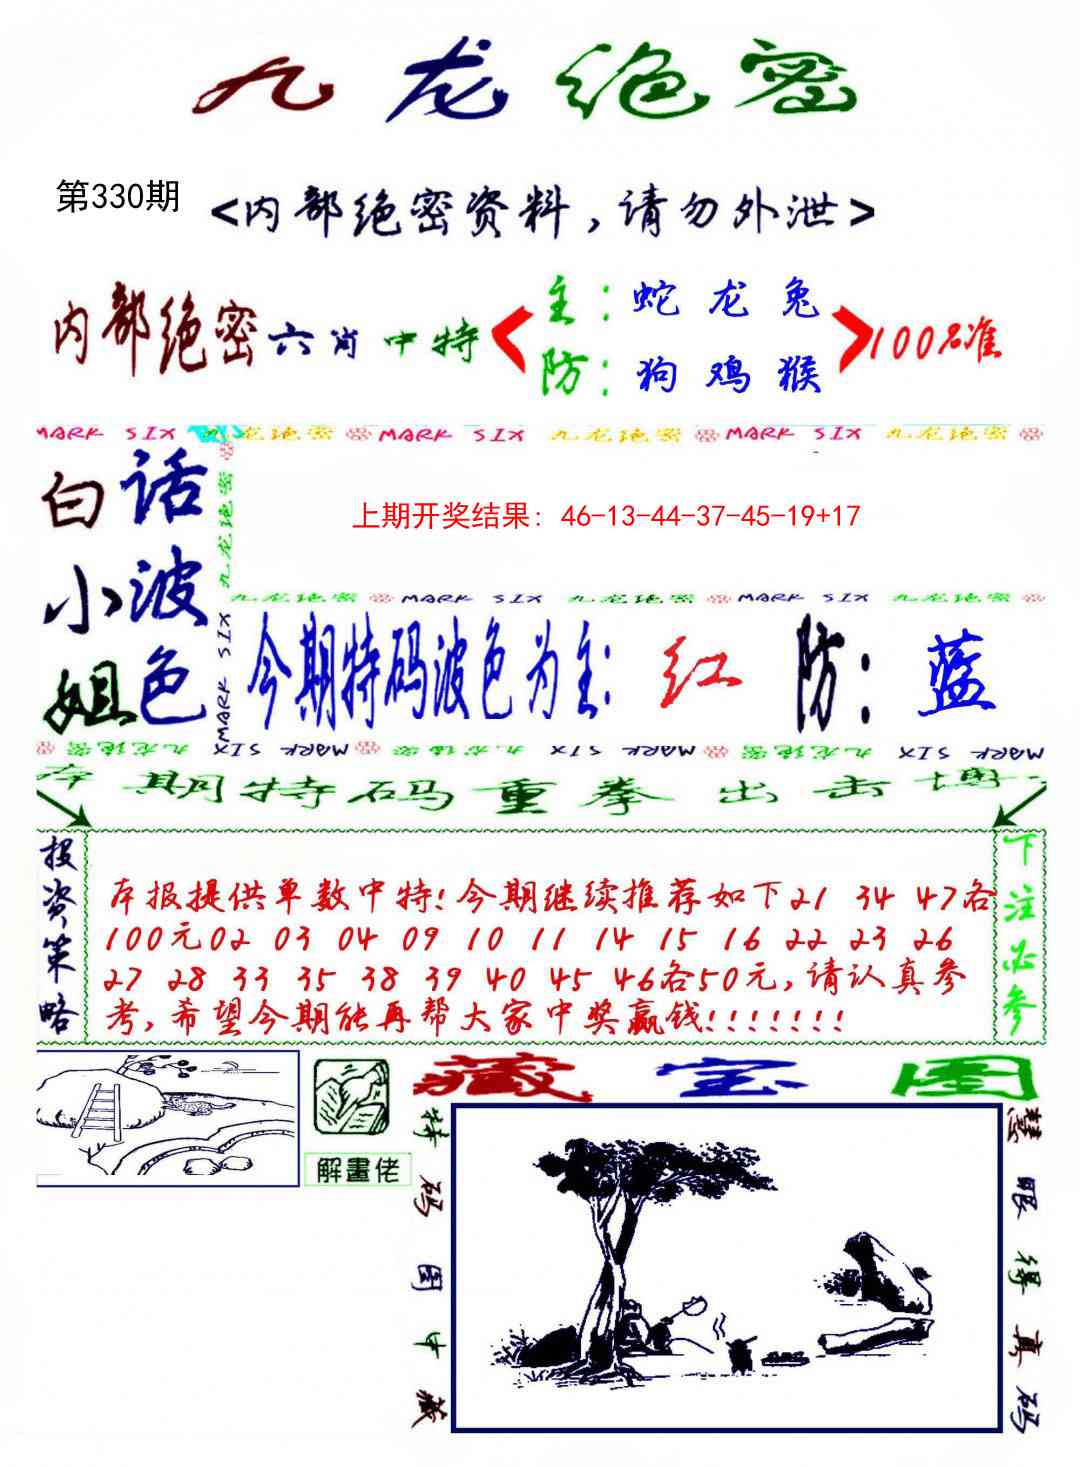 九龙绝密
第330期
<内部绝密资料,请勿外泄>
内部绝密六肖中特
主:蛇 龙 兔
防:狗 鸡 猴
100%准
MARK SIX 九龙绝密 MARK SIX 九龙绝密 MARK SIX 九龙绝密
白小姐
话波色
九龙绝密
MARK SIX
MARK
上期开奖结果: 46-13-44-37-45-19+17
九龙绝密 MARK SIX 九龙绝密 MARK SIX 九龙绝密
今期特码波色为主: 红 防: 蓝
九龙绝密 MARK SIX 九龙绝密 MARK SIX 九龙绝密 MARK SIX
本期特码重拳出击博
投资策略
本报提供单数中特!今期继续推荐如下21 34 47各
100元02 03 04 09 10 11 14 15 16 22 23 26
27 28 33 35 38 39 40 45 46各50元,请认真参
考,希望今期能再帮大家中奖赢钱!!!!!!!
下注必参
解畫佬
藏宝图
特码图中藏
慧眼得真码